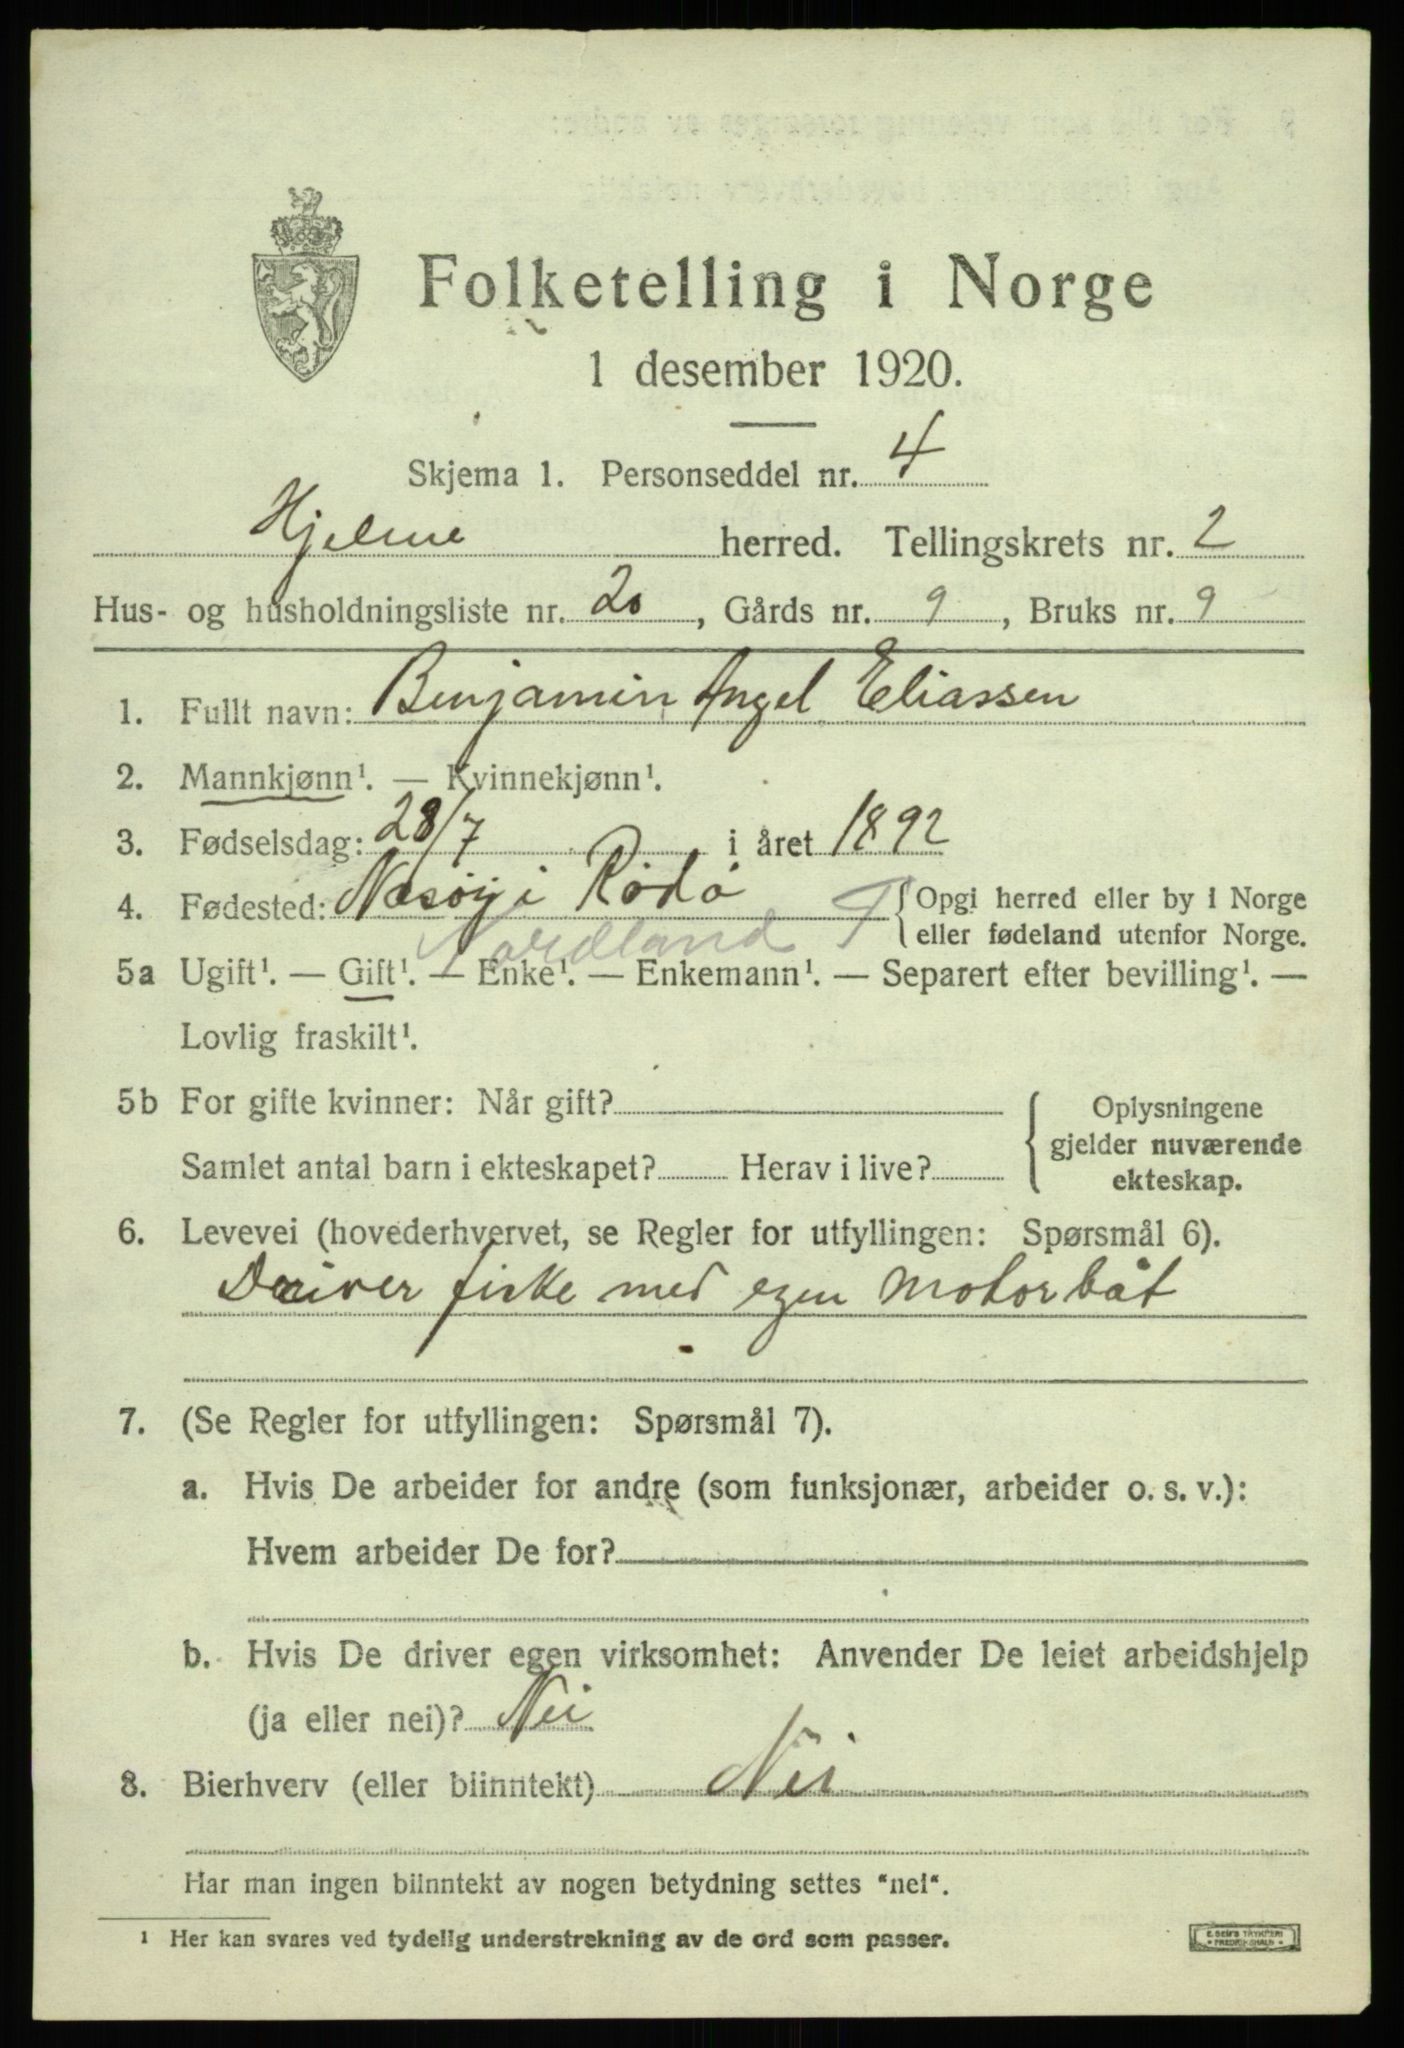 Folketelling i Norge
1 desember 1920.
Skjema 1. Personseddel nr. 4
Hjelme herred. Tellingskrets nr. 2
Hus- og husholdningsliste nr. 20, Gårds nr. 9, Bruks nr. 9
1. Fullt navn: Benjamin Angel Eliassen
2. Mannkjønn¹. — Kvinnekjønn¹.
3. Fødselsdag: 28/7 i året 1892
4. Fødested: Næsøy i Rødø { Opgi herred eller by i Norge
Nordland T eller fødeland utenfor Norge.
5a Ugift¹. — Gift¹. — Enke¹. — Enkemann¹. — Separert efter bevilling¹. —
Lovlig fraskilt¹.
5b For gifte kvinner: Når gift? { Oplysningene
gjelder nuværende
Samlet antal barn i ekteskapet? Herav i live? ekteskap.
6. Levevei (hovederhvervet, se Regler for utfyllingen: Spørsmål 6).
Driver fiske med egen motorbåt
7. (Se Regler for utfyllingen: Spørsmål 7).
a. Hvis De arbeider for andre (som funksjonær, arbeider o. s. v.):
Hvem arbeider De for?
b. Hvis De driver egen virksomhet: Anvender De leiet arbeidshjelp
(ja eller nei)? Nei
8. Bierhverv (eller biinntekt) Nei
Har man ingen biinntekt av nogen betydning settes "nei".
¹ Her kan svares ved tydelig understrekning av de ord som passer.
E. SEM'S TRYKKERI
FREDRIKSHALD